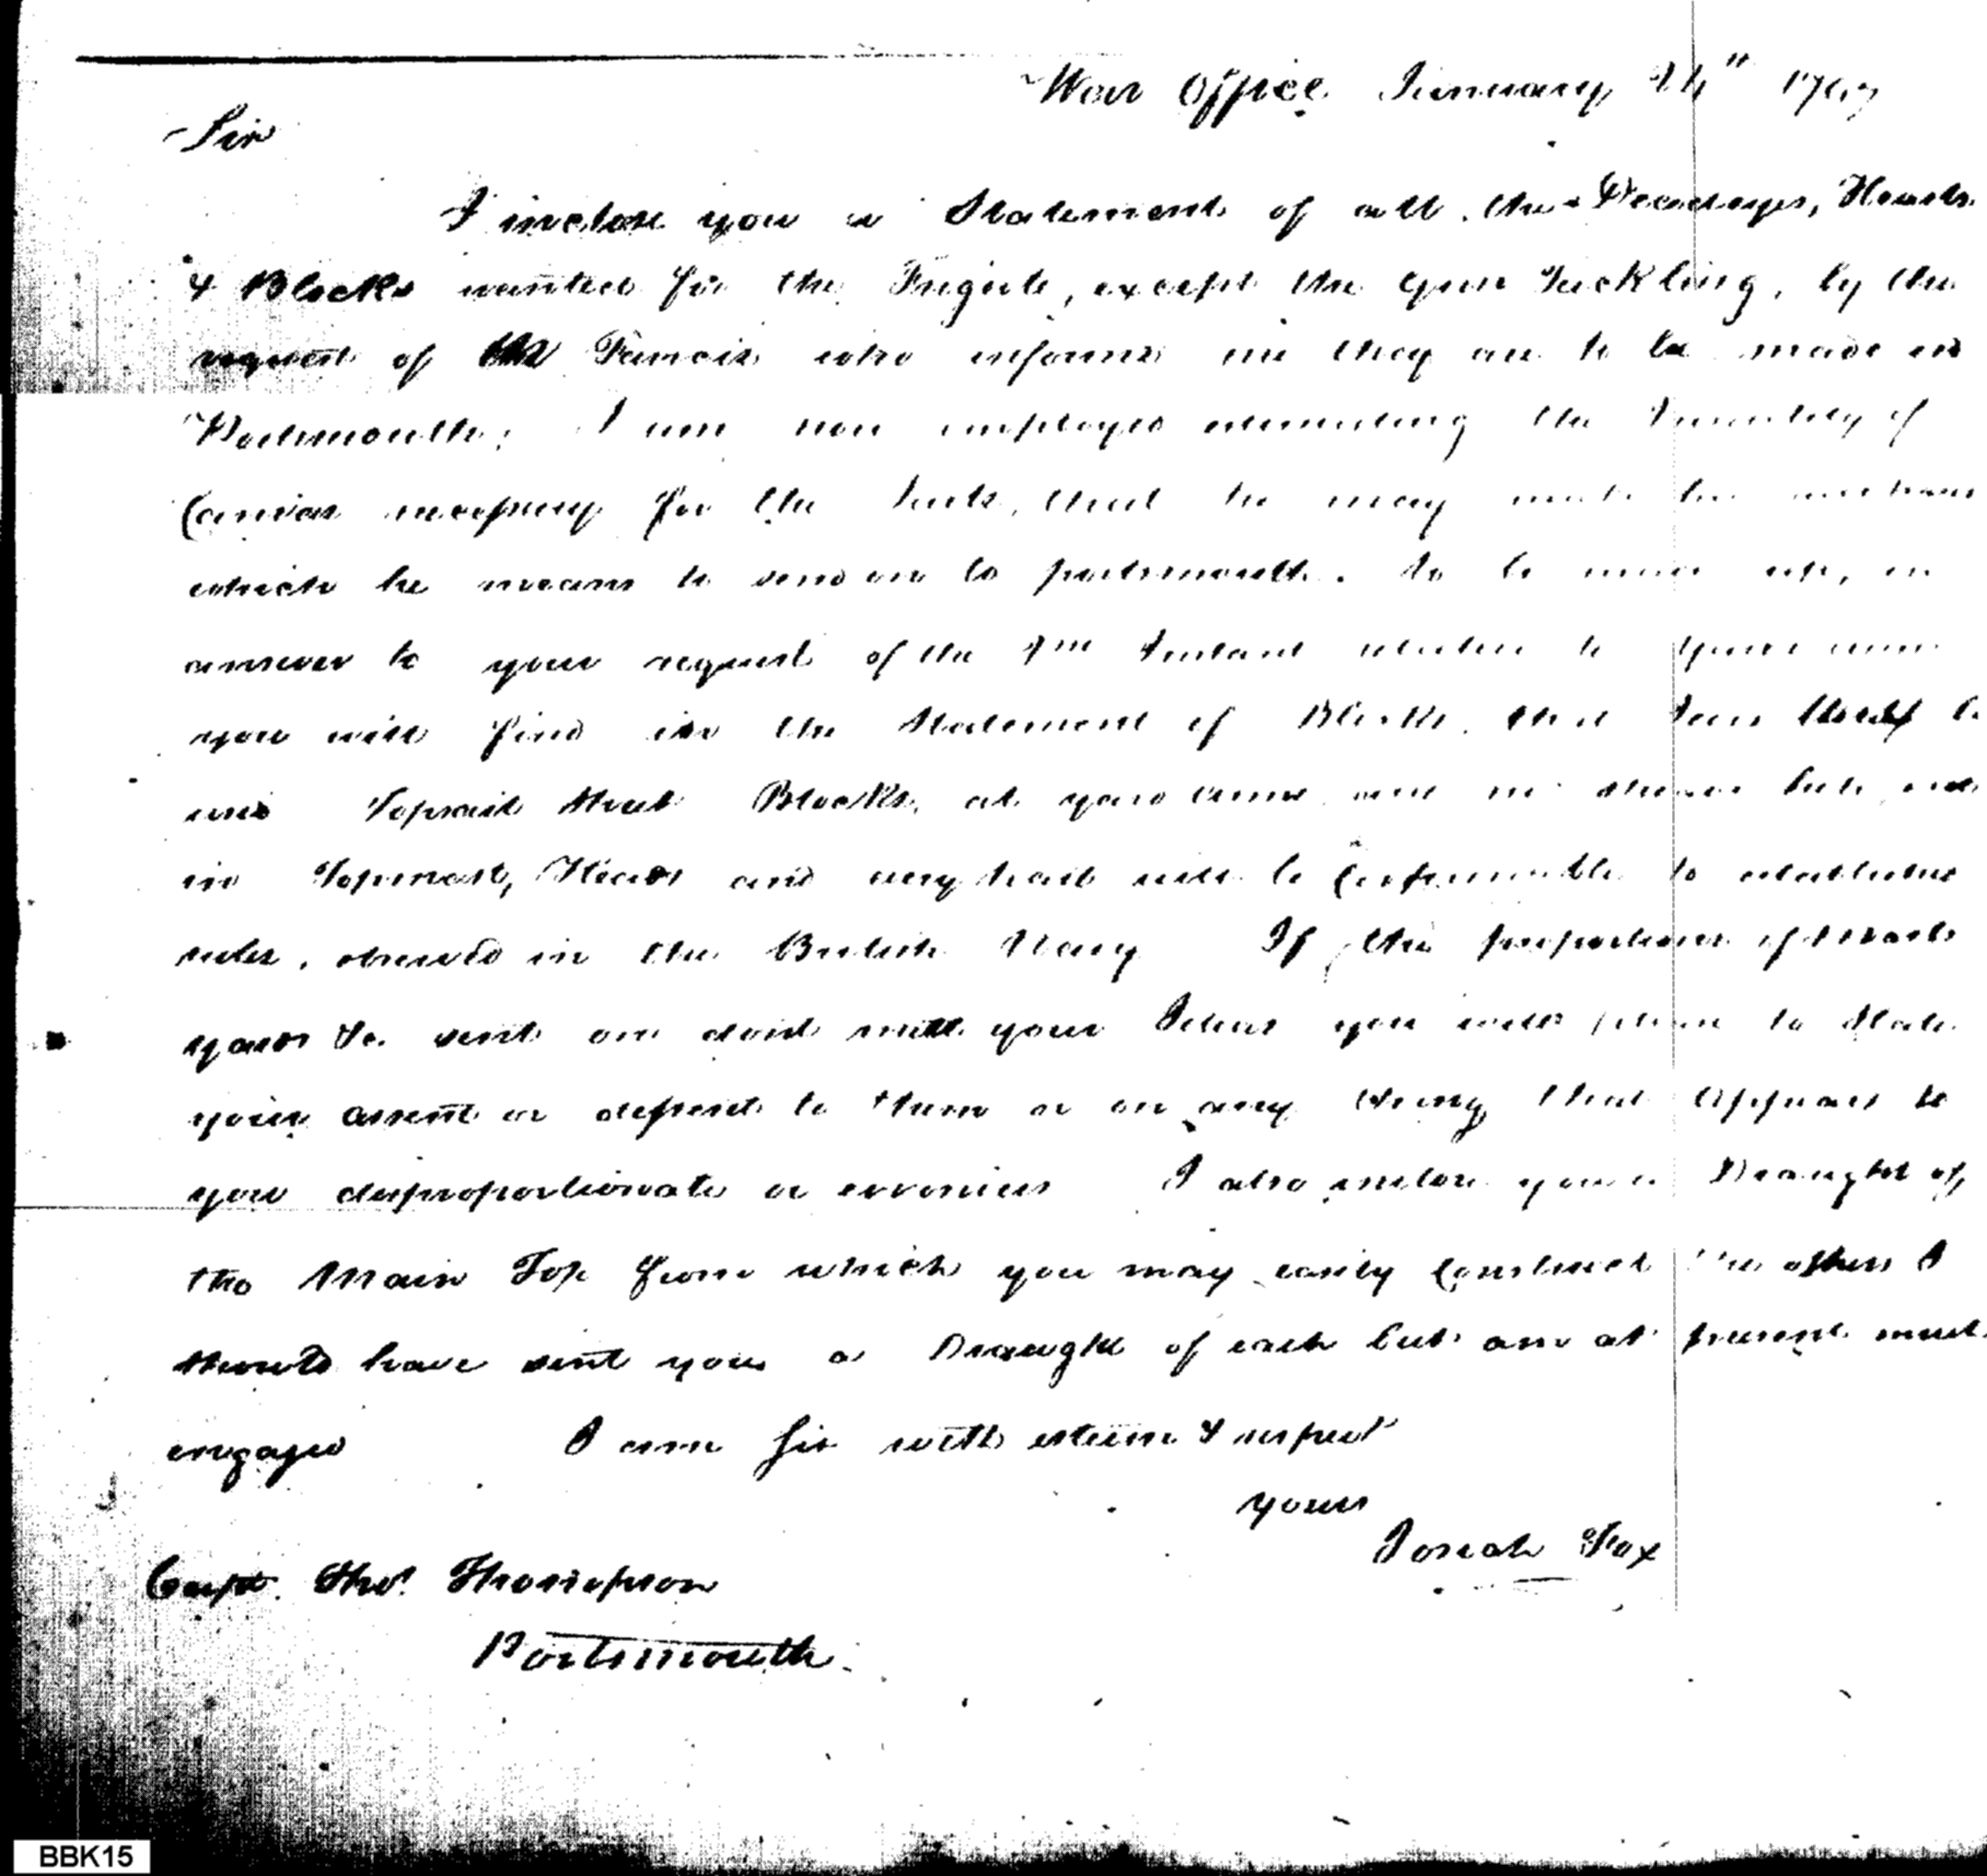 War Office January 24th 1797
Sir
I inclose you a Statement of all the Deadeyes, Hearts
& Blocks wanted for the Frigate, except the Gun Tackling, by the
request of Francis who informs me they are to be made in
Portsmouth; I am now employed estimating the Quantity of
Canvas necessary for the that he may
which he means to send on to portsmouth. to be made up, in
answer to your request of the Instant relative to
you will find in the Statement of Blocks, that
and Topsail Sheet Blocks, at yard arms are but not
in Topmast, Heads and will be Conformable to established
rules, observed in the British Navy If the proportions of Masts
yards &c. sent on dont meet your Ideas you will please to State
your assent or dissent to them or on any thing that Appears to
you disproportionate or erronious I also inclose you a Draught of
the Main Top from which you may easily Construct the others I
should have sent you a Draught of each but am at present much
engaged I am Sir with esteem & respect
yours
Josiah Fox
Capt. Thos. Thompson
Portsmouth.
BBK15